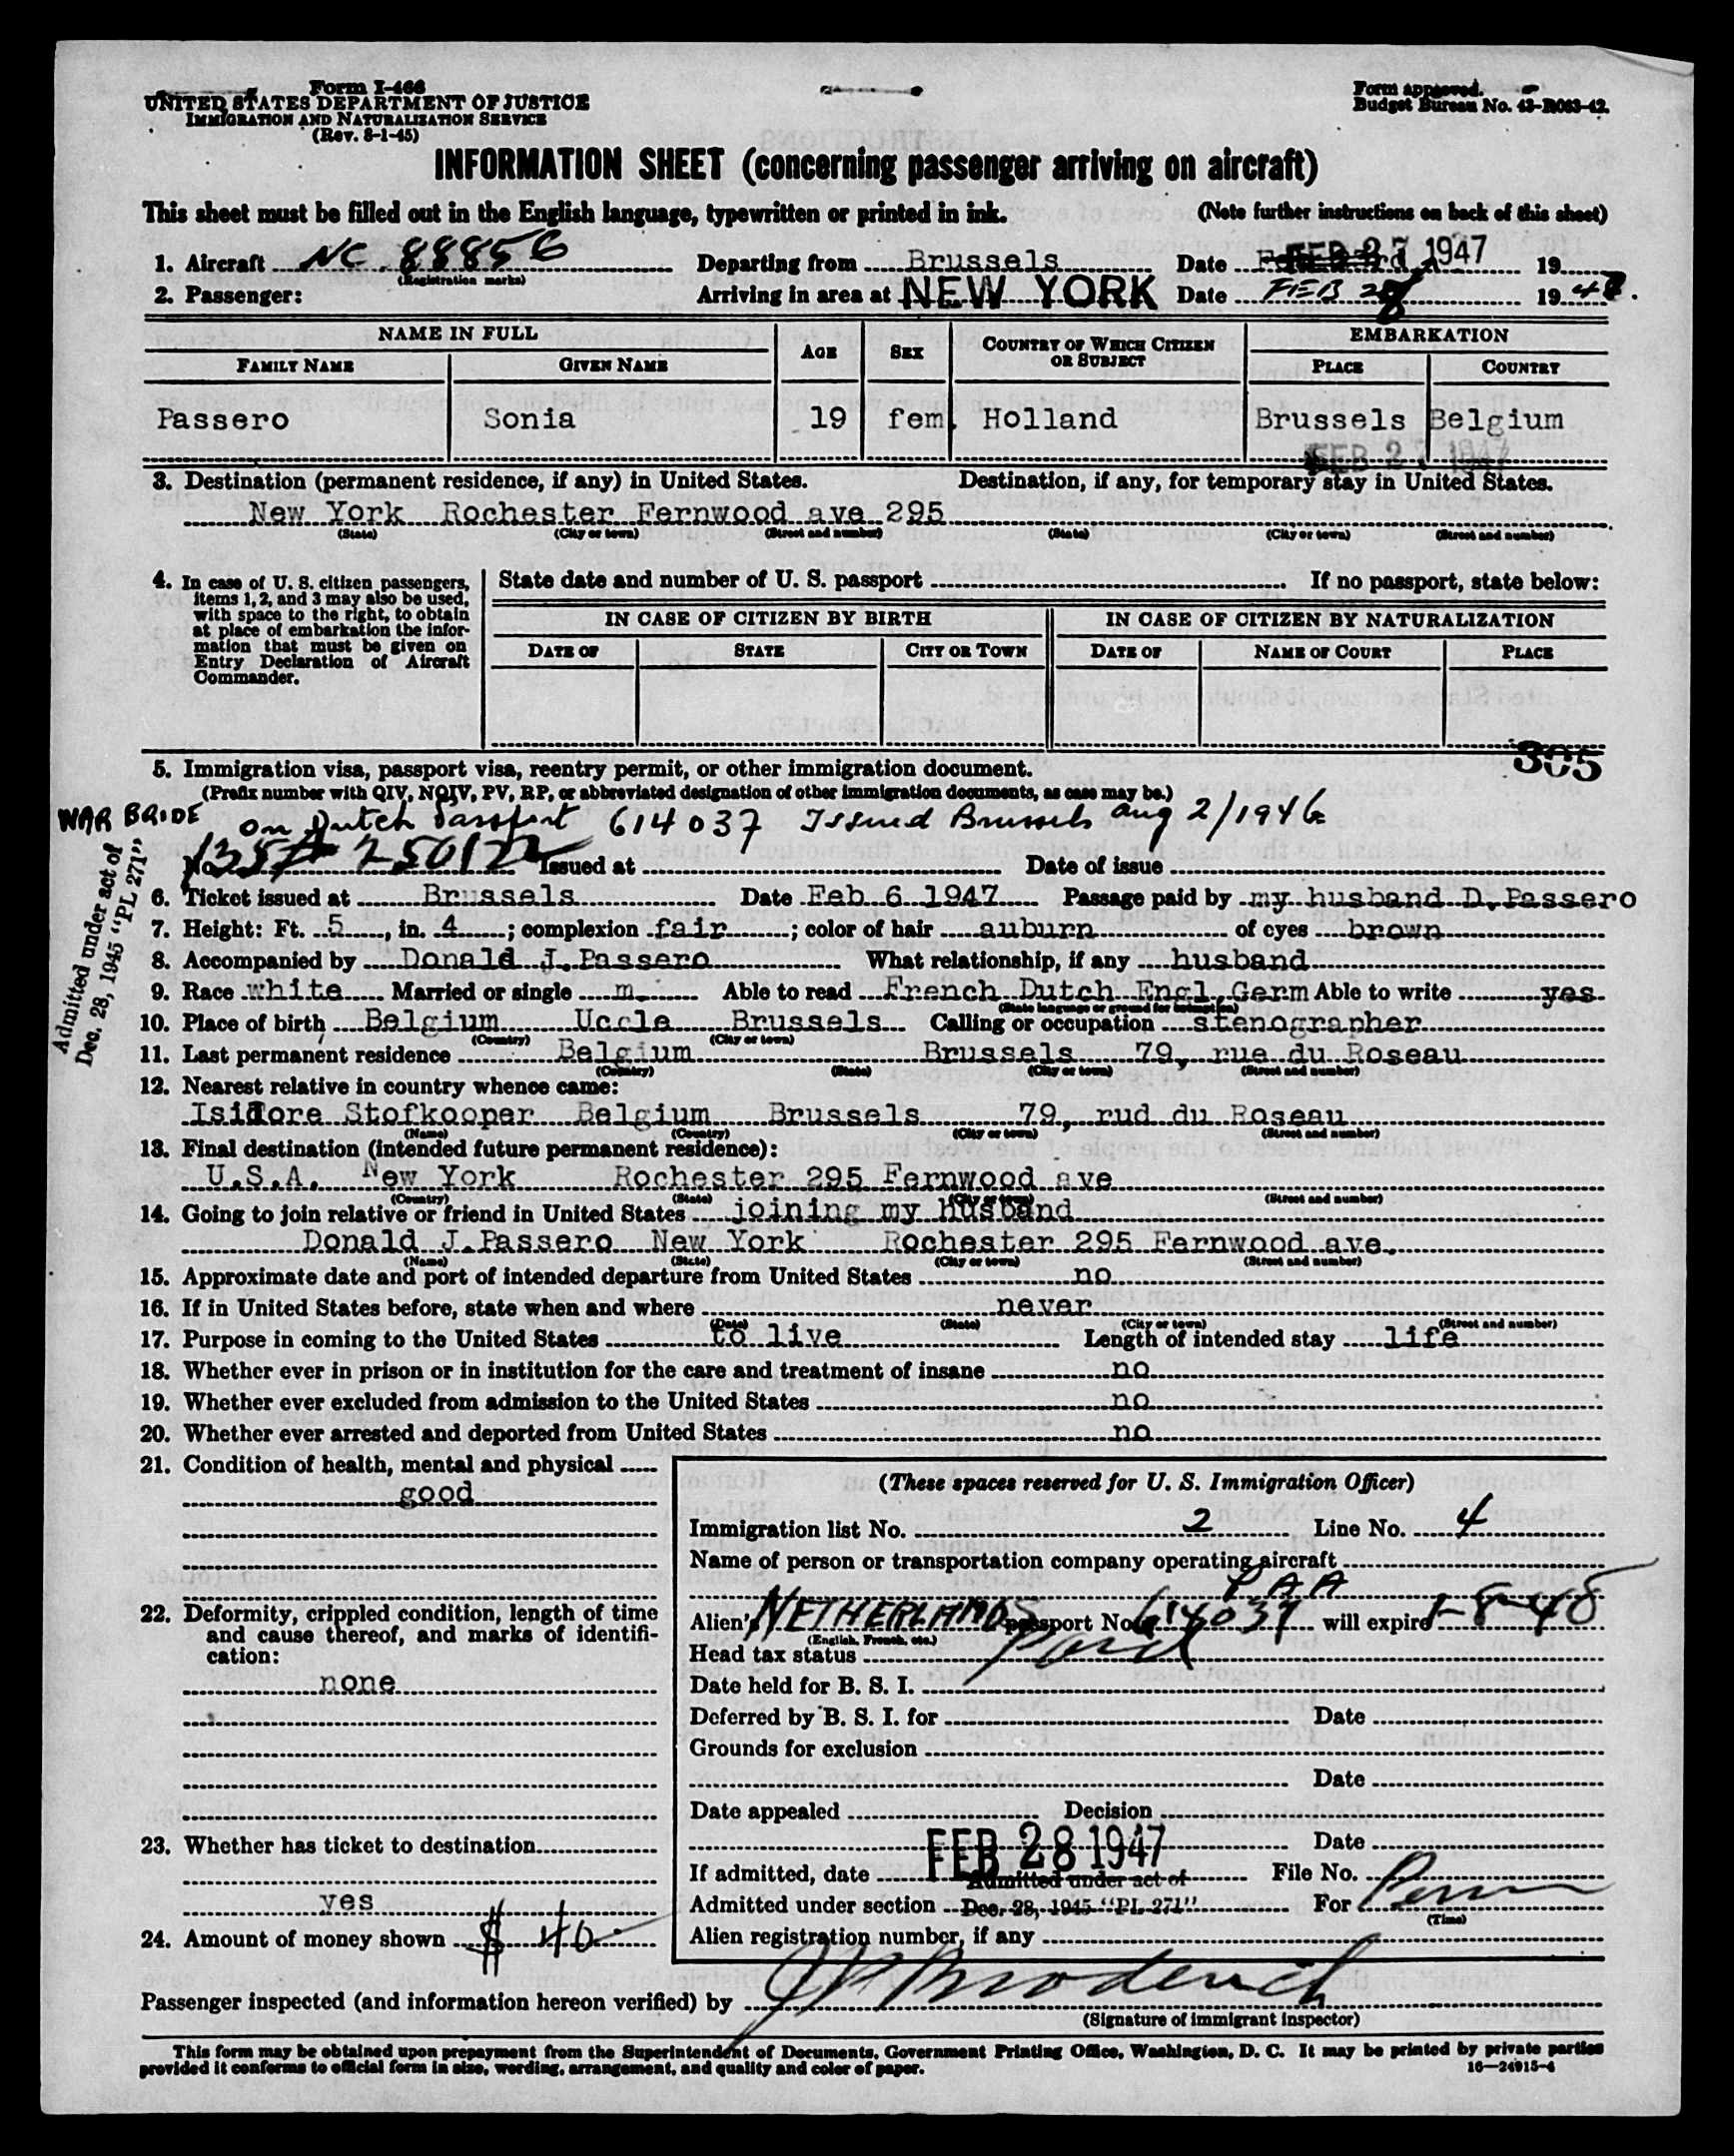 Form I-466
UNITED STATES DEPARTMENT OF JUSTICE
IMMIGRATION AND NATURALIZATION SERVICE
(Rev. 8-1-45)
Form approved.
Budget Bureau No. 43-R063-42.
INFORMATION SHEET (concerning passenger arriving on aircraft)
This sheet must be filled out in the English language, typewritten or printed in ink. (Note further instructions on back of this sheet)
1. Aircraft NC 88856 Departing from Brussels Date FEB 27 1947 19
(Registration marks)
2. Passenger: Arriving in area at NEW YORK Date FEB 28 1947.
NAME IN FULL AGE SEX COUNTRY OF WHICH CITIZEN OR SUBJECT EMBARKATION
FAMILY NAME GIVEN NAME PLACE COUNTRY
Passero Sonia 19 fem. Holland Brussels Belgium
FEB 27 1947
3. Destination (permanent residence, if any) in United States. Destination, if any, for temporary stay in United States.
New York Rochester Fernwood ave 295
(State) (City or town) (Street and number) (State) (City or town) (Street and number)
4. In case of U. S. citizen passengers, items 1, 2, and 3 may also be used, with space to the right, to obtain at place of embarkation the information that must be given on Entry Declaration of Aircraft Commander.
State date and number of U. S. passport If no passport, state below:
IN CASE OF CITIZEN BY BIRTH IN CASE OF CITIZEN BY NATURALIZATION
DATE OF STATE CITY OR TOWN DATE OF NAME OF COURT PLACE
305
5. Immigration visa, passport visa, reentry permit, or other immigration document.
(Prefix number with QIV, NQIV, PV, RP, or abbreviated designation of other immigration documents, as case may be.)
WAR BRIDE on Dutch Passport 614037 Issued Brussels Aug 2/1946
Admitted under act of
Dec. 28, 1945 "PL 271"
No. Issued at Date of issue
6. Ticket issued at Brussels Date Feb 6 1947 Passage paid by my husband D.Passero
7. Height: Ft. 5, in. 4; complexion fair; color of hair auburn of eyes brown
8. Accompanied by Donald J.Passero What relationship, if any husband
9. Race white Married or single m. Able to read French Dutch Engl.Germ Able to write yes
(State language or ground for exemption)
10. Place of birth Belgium Uccle Brussels Calling or occupation stenographer
(Country) (City or town)
11. Last permanent residence Belgium Brussels 79, rue du Roseau
(Country) (State) (City or town) (Street and number)
12. Nearest relative in country whence came:
Isidore Stofkooper Belgium Brussels 79, rud du Roseau
(Name) (Country) (City or town) (Street and number)
13. Final destination (intended future permanent residence):
U.S.A. New York Rochester 295 Fernwood ave
(Country) (State) (City or town) (Street and number)
14. Going to join relative or friend in United States joining my husband
Donald J.Passero New York Rochester 295 Fernwood ave.
(Name) (State) (City or town) (Street and number)
15. Approximate date and port of intended departure from United States no
16. If in United States before, state when and where never
(Date) (State) (City or town) (Street and number)
17. Purpose in coming to the United States to live Length of intended stay life
18. Whether ever in prison or in institution for the care and treatment of insane no
19. Whether ever excluded from admission to the United States no
20. Whether ever arrested and deported from United States no
21. Condition of health, mental and physical
good
22. Deformity, crippled condition, length of time and cause thereof, and marks of identification:
none
23. Whether has ticket to destination
yes
24. Amount of money shown $ 40
(These spaces reserved for U. S. Immigration Officer)
Immigration list No. 2 Line No. 4
Name of person or transportation company operating aircraft
P A A
Alien's NETHERLANDS passport No. 614037 will expire 1-8-48
(English, French, etc.)
Head tax status Paid
Date held for B. S. I.
Deferred by B. S. I. for Date
Grounds for exclusion
Date
Date appealed Decision
Date
If admitted, date FEB 28 1947 File No.
Admitted under act of
Admitted under section Dec. 28, 1945 "PL 271" For Perm
(Time)
Alien registration number, if any
Passenger inspected (and information hereon verified) by
(Signature of immigrant inspector)
This form may be obtained upon prepayment from the Superintendent of Documents, Government Printing Office, Washington, D. C. It may be printed by private parties
provided it conforms to official form in size, wording, arrangement, and quality and color of paper. 16—24915-4